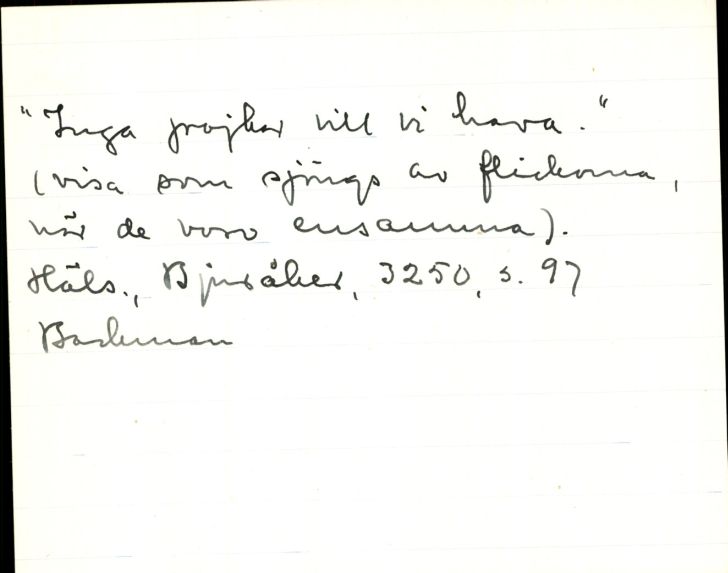 "Inga pojkar vill vi hava."
(visa som sjöngs av flickorna,
när de voro ensamma).
Häls., Bjuråker, 3250, s. 97
Backman